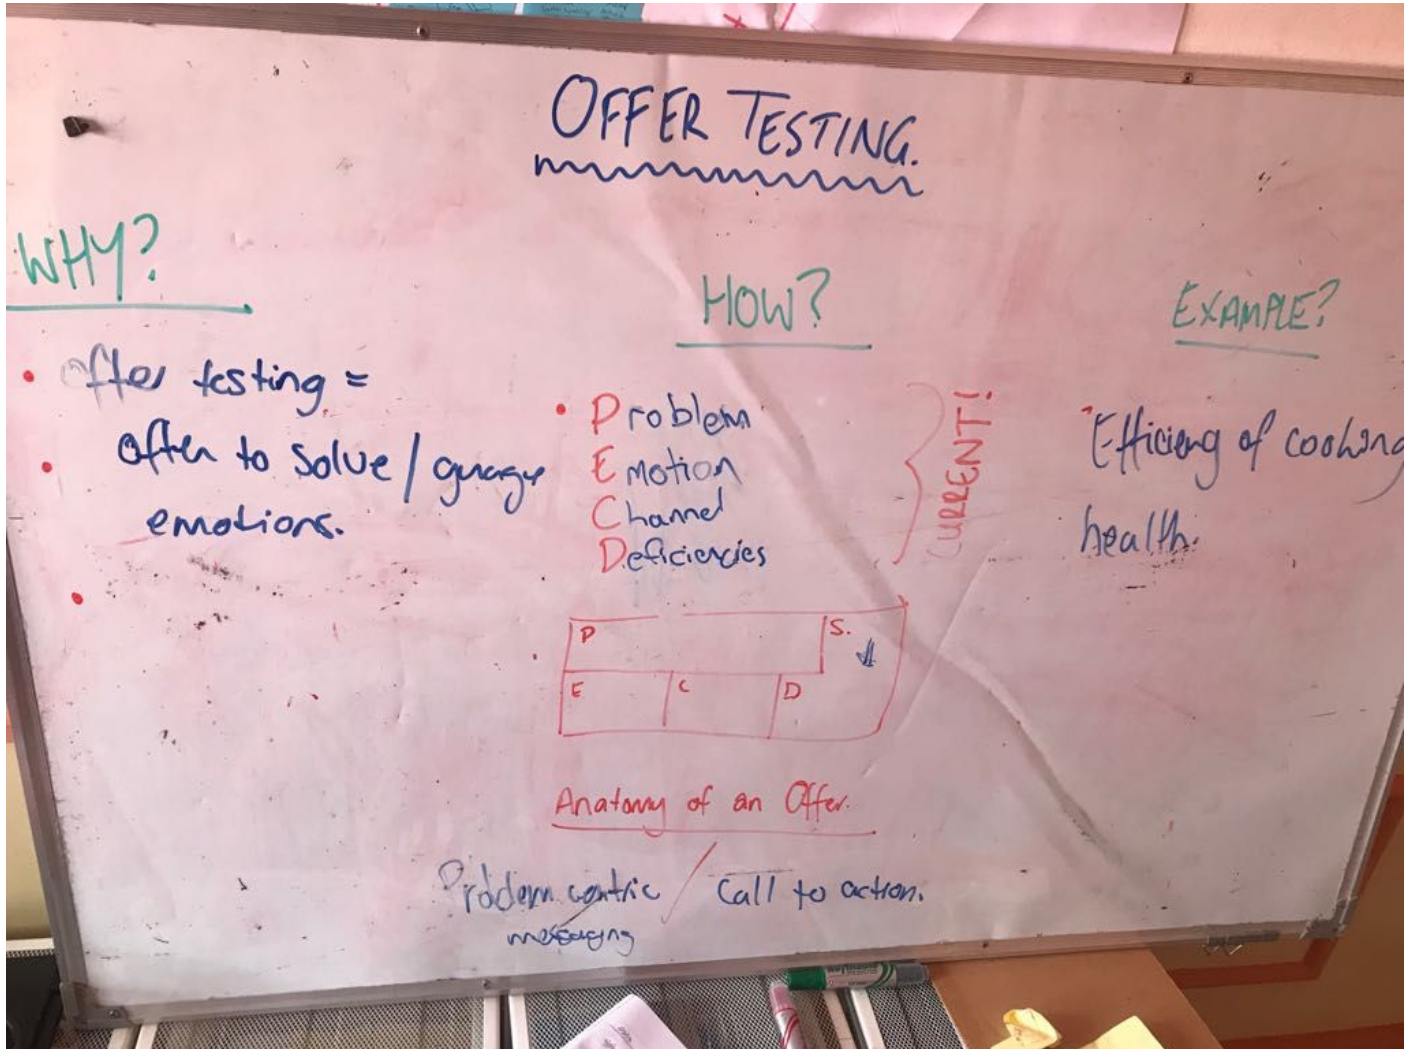 OFFER TESTING.
WHY?
Offer testing =
offer to solve / guage
emotions.
HOW?
Problem
Emotion
Channel
Deficiencies
CURRENT!
P
S.
E
C
D
Anatomy of an Offer.
Problem centric / Call to action.
messaging
EXAMPLE?
Efficiency of cooking
health.